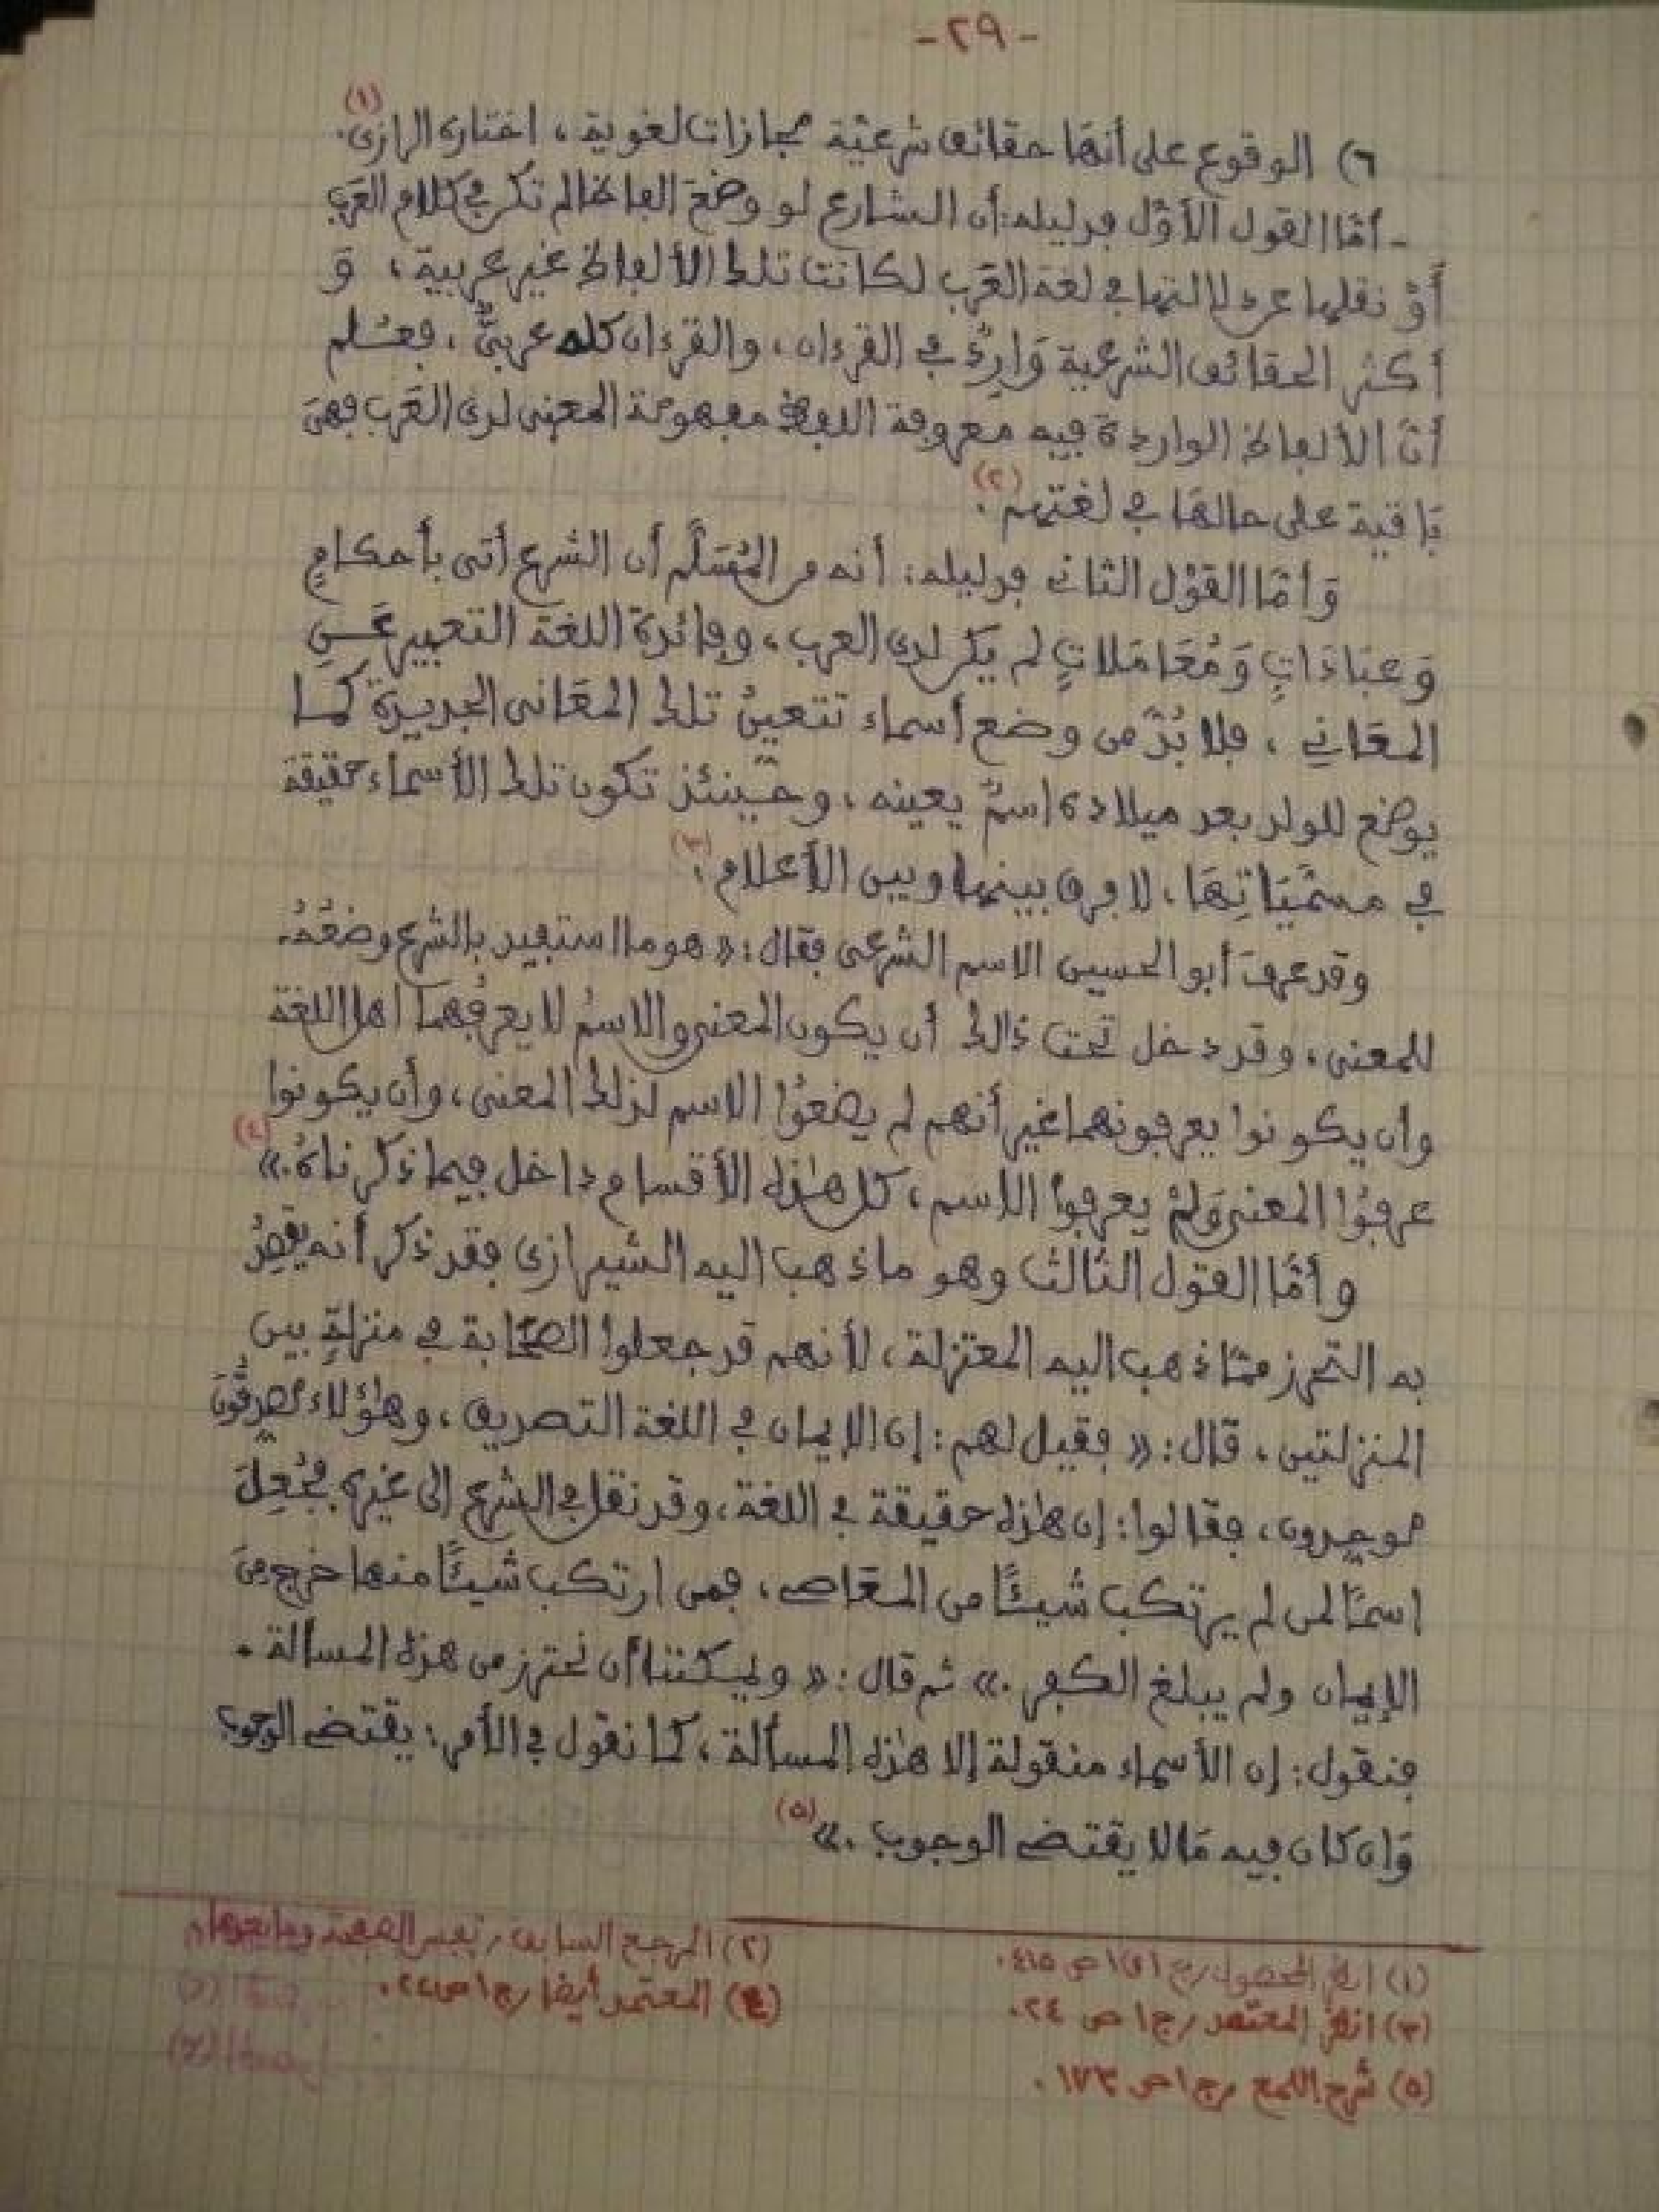 -٢٩-
٦) الوقوع على أنهَا حقائق شرعيّة مجازات لغوية، اختاره الرازي.(١)
- أمّا القول الأوّل فدليله: أن الشارع لو وضعَ ألفاظا لم تكن في كلام العَرَب
أَوْ نقلها عن دلالتها في لغة العَرَب لكانت تلك الألفاظ غير عربية، وَ
أكثر الحقائق الشرعية وَارِدٌ في القرءان، والقرءان كله عربيٌّ، فعُلم
أنّ الألفاظ الواردة فيه معروفة اللفظ مفهومَة المعنى لدى العَرَب فهيَ
بَاقية على حالهَا في لغتهم.(٢)
وَأمّا القوْل الثاني فدليله: أنه من المُسَلَّم أن الشرع أتى بأحكامٍ
وَعبَادَاتٍ وَمُعَامَلاتٍ لم يَكن لدى العرب، وفائدة اللغة التعبير عَــنِ
المعَاني، فلا بُدَّ من وضع أسماء تتعينُ تلك المعَانى الجديدة كمـا
يوضع للولد بعد ميلاده اسمٌ يعينه، وحيـنئذ تكون تلك الأسماء حقيقة
في مسمَّيَاتِهَا، لا فرق بينها وبين الأعلام.(٣)
وقد عرفَ أبو الحسين الاسم الشرعى فقال: «هو ما استفيد بالشرع وضعُهُ
للمعنى، وقد دخل تحت ذالك أن يكون المعنى والاسمُ لا يعرفُهمَا أهل اللغة
وان يكونوا يعرفونهما غير أنهم لم يضعُوا الاسم لذلك المعنى، وأن يكونوا
عرفُوا المعنى وَلمْ يعرفوا الاسم، كل هٰذه الأقسام داخل فيما ذكرناهُ.»(٤)
وأمّا القول الثالث وهو ما ذهب اليه الشيرازى فقد ذكر أنه يقصِدُ
به التحرز ممّا ذهب اليه المعتزلة، لأنهم قد جعلوا الصّحَابة في منزلةٍ بين
المنزلتين، قال: «فقيل لهم: إن الإيمان في اللغة التصديق، وهٰؤلاء مصدِّقُونَ
موحدون، فقالوا: إن هٰذه حقيقة في اللغة، وقد نقل في الشرع إلى غيره فجُعِلَ
اسمًا لمن لم يرتكب شيئًا من المعَاصى، فمن ارتكب شيئًا منها خرج مِنَ
الإيمان ولم يبلغ الكفر.» ثم قال: «ويمكننا أن نحترز من هذه المسألة.
فنقول: إن الأسماء منقولة إلا هٰذه المسألة، كما نقول في الأمر: يقتضى الوجوب
وَان كان فيه مَا لا يقتضى الوجوب.»(٥)
(١) انظر المحصول / ج١ ق١ ص ٤١٥.
(٢) المرجع السابق / نفس الصفحة وما بعدها.
(٣) انظر المعتمد / ج١ ص ٢٤.
(٤) المعتمد أيضا / ج١ ص ٢٤.
(٥) شرح اللمع / ج١ ص ١٧٣.